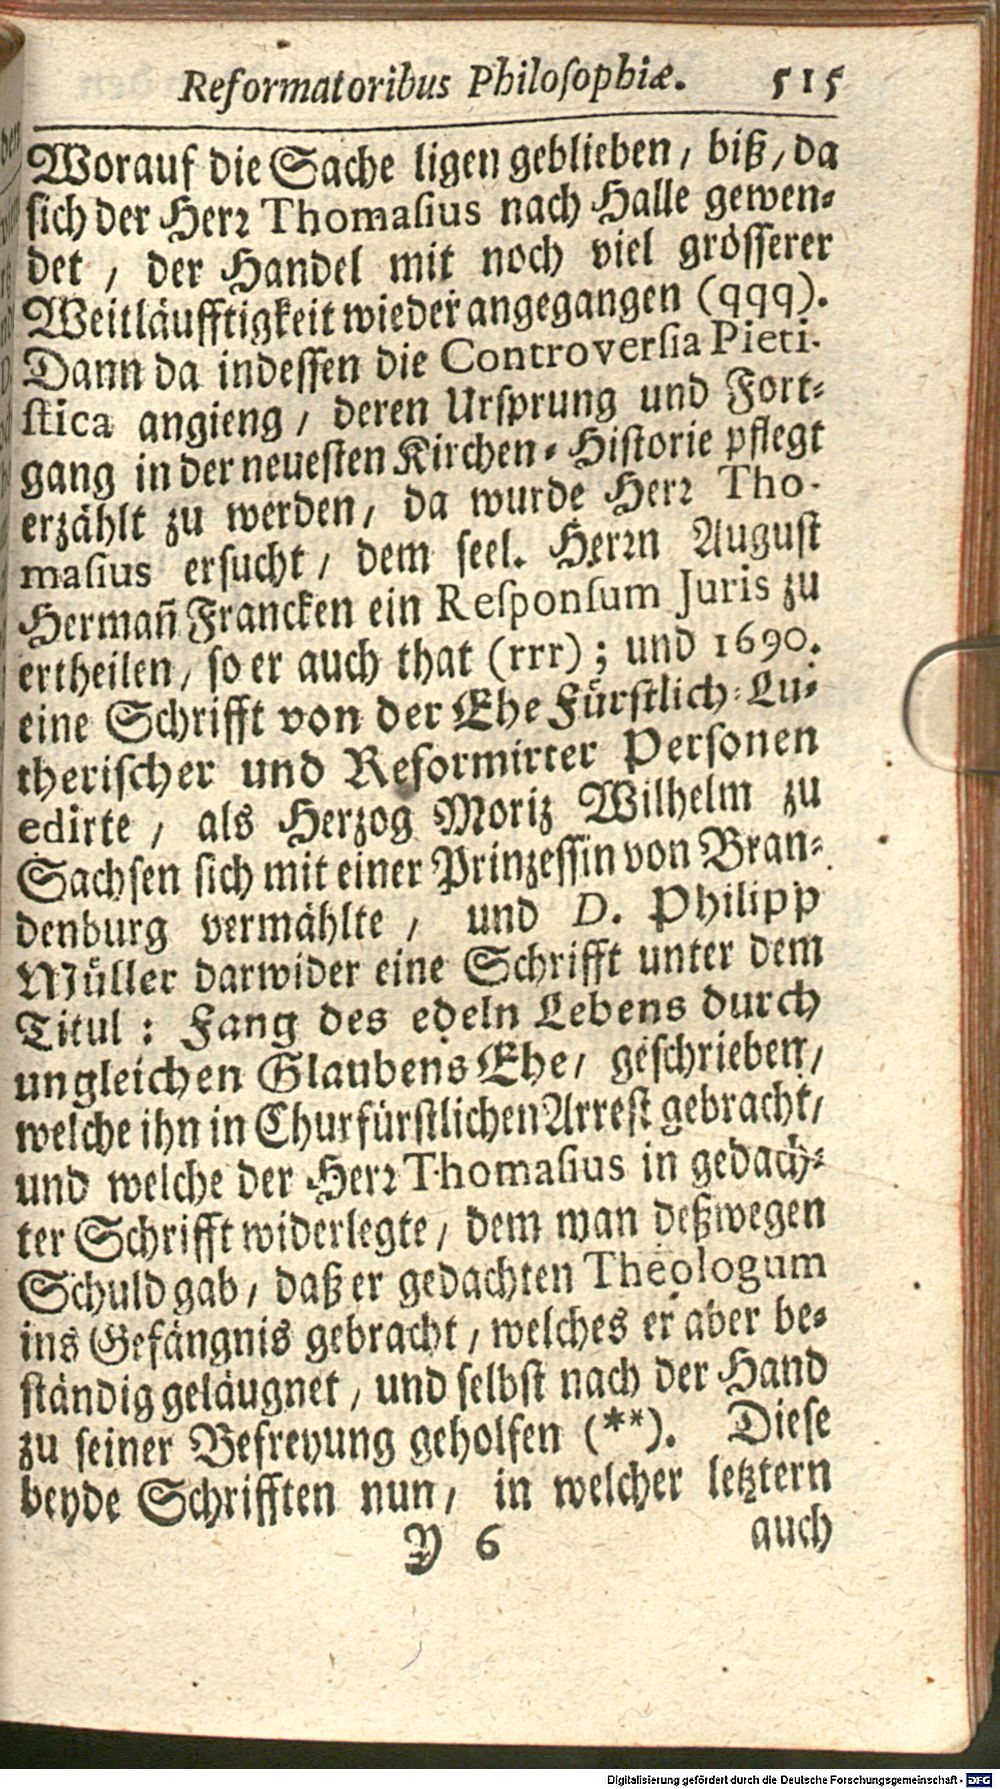 Reformatoribus Philosophiæ. 515
Worauf die Sache ligen geblieben / biß / da
sich der Herr Thomasius nach Halle gewen-
det / der Handel mit noch viel grösserer
Weitläufftigkeit wieder angegangen (qqq).
Dann da indessen die Controversia Pieti-
stica angieng / deren Ursprung und Fort-
gang in der neuesten Kirchen-Historie pflegt
erzählt zu werden / da wurde Herr Tho-
masius ersucht / dem seel. Herrn August
Hermañ Francken ein Responsum Juris zu
ertheilen / so er auch that (rrr) ; und 1690.
eine Schrifft von der Ehe Fürstlich-Lu-
therischer und Reformirter Personen
edirte / als Herzog Moriz Wilhelm zu
Sachsen sich mit einer Prinzessin von Bran-
denburg vermählte / und D. Philipp
Müller darwider eine Schrifft unter dem
Titul : Fang des edeln Lebens durch
ungleichen Glaubens Ehe / geschrieben /
welche ihn in Churfürstlichen Arrest gebracht /
und welche der Herr Thomasius in gedach-
ter Schrifft widerlegte / dem man deßwegen
Schuld gab / daß er gedachten Theologum
ins Gefängnis gebracht / welches er aber be-
ständig geläugnet / und selbst nach der Hand
zu seiner Befreyung geholfen (**). Diese
beyde Schrifften nun / in welcher letztern
Y 6 auch
Digitalisierung gefördert durch die Deutsche Forschungsgemeinschaft - DFG